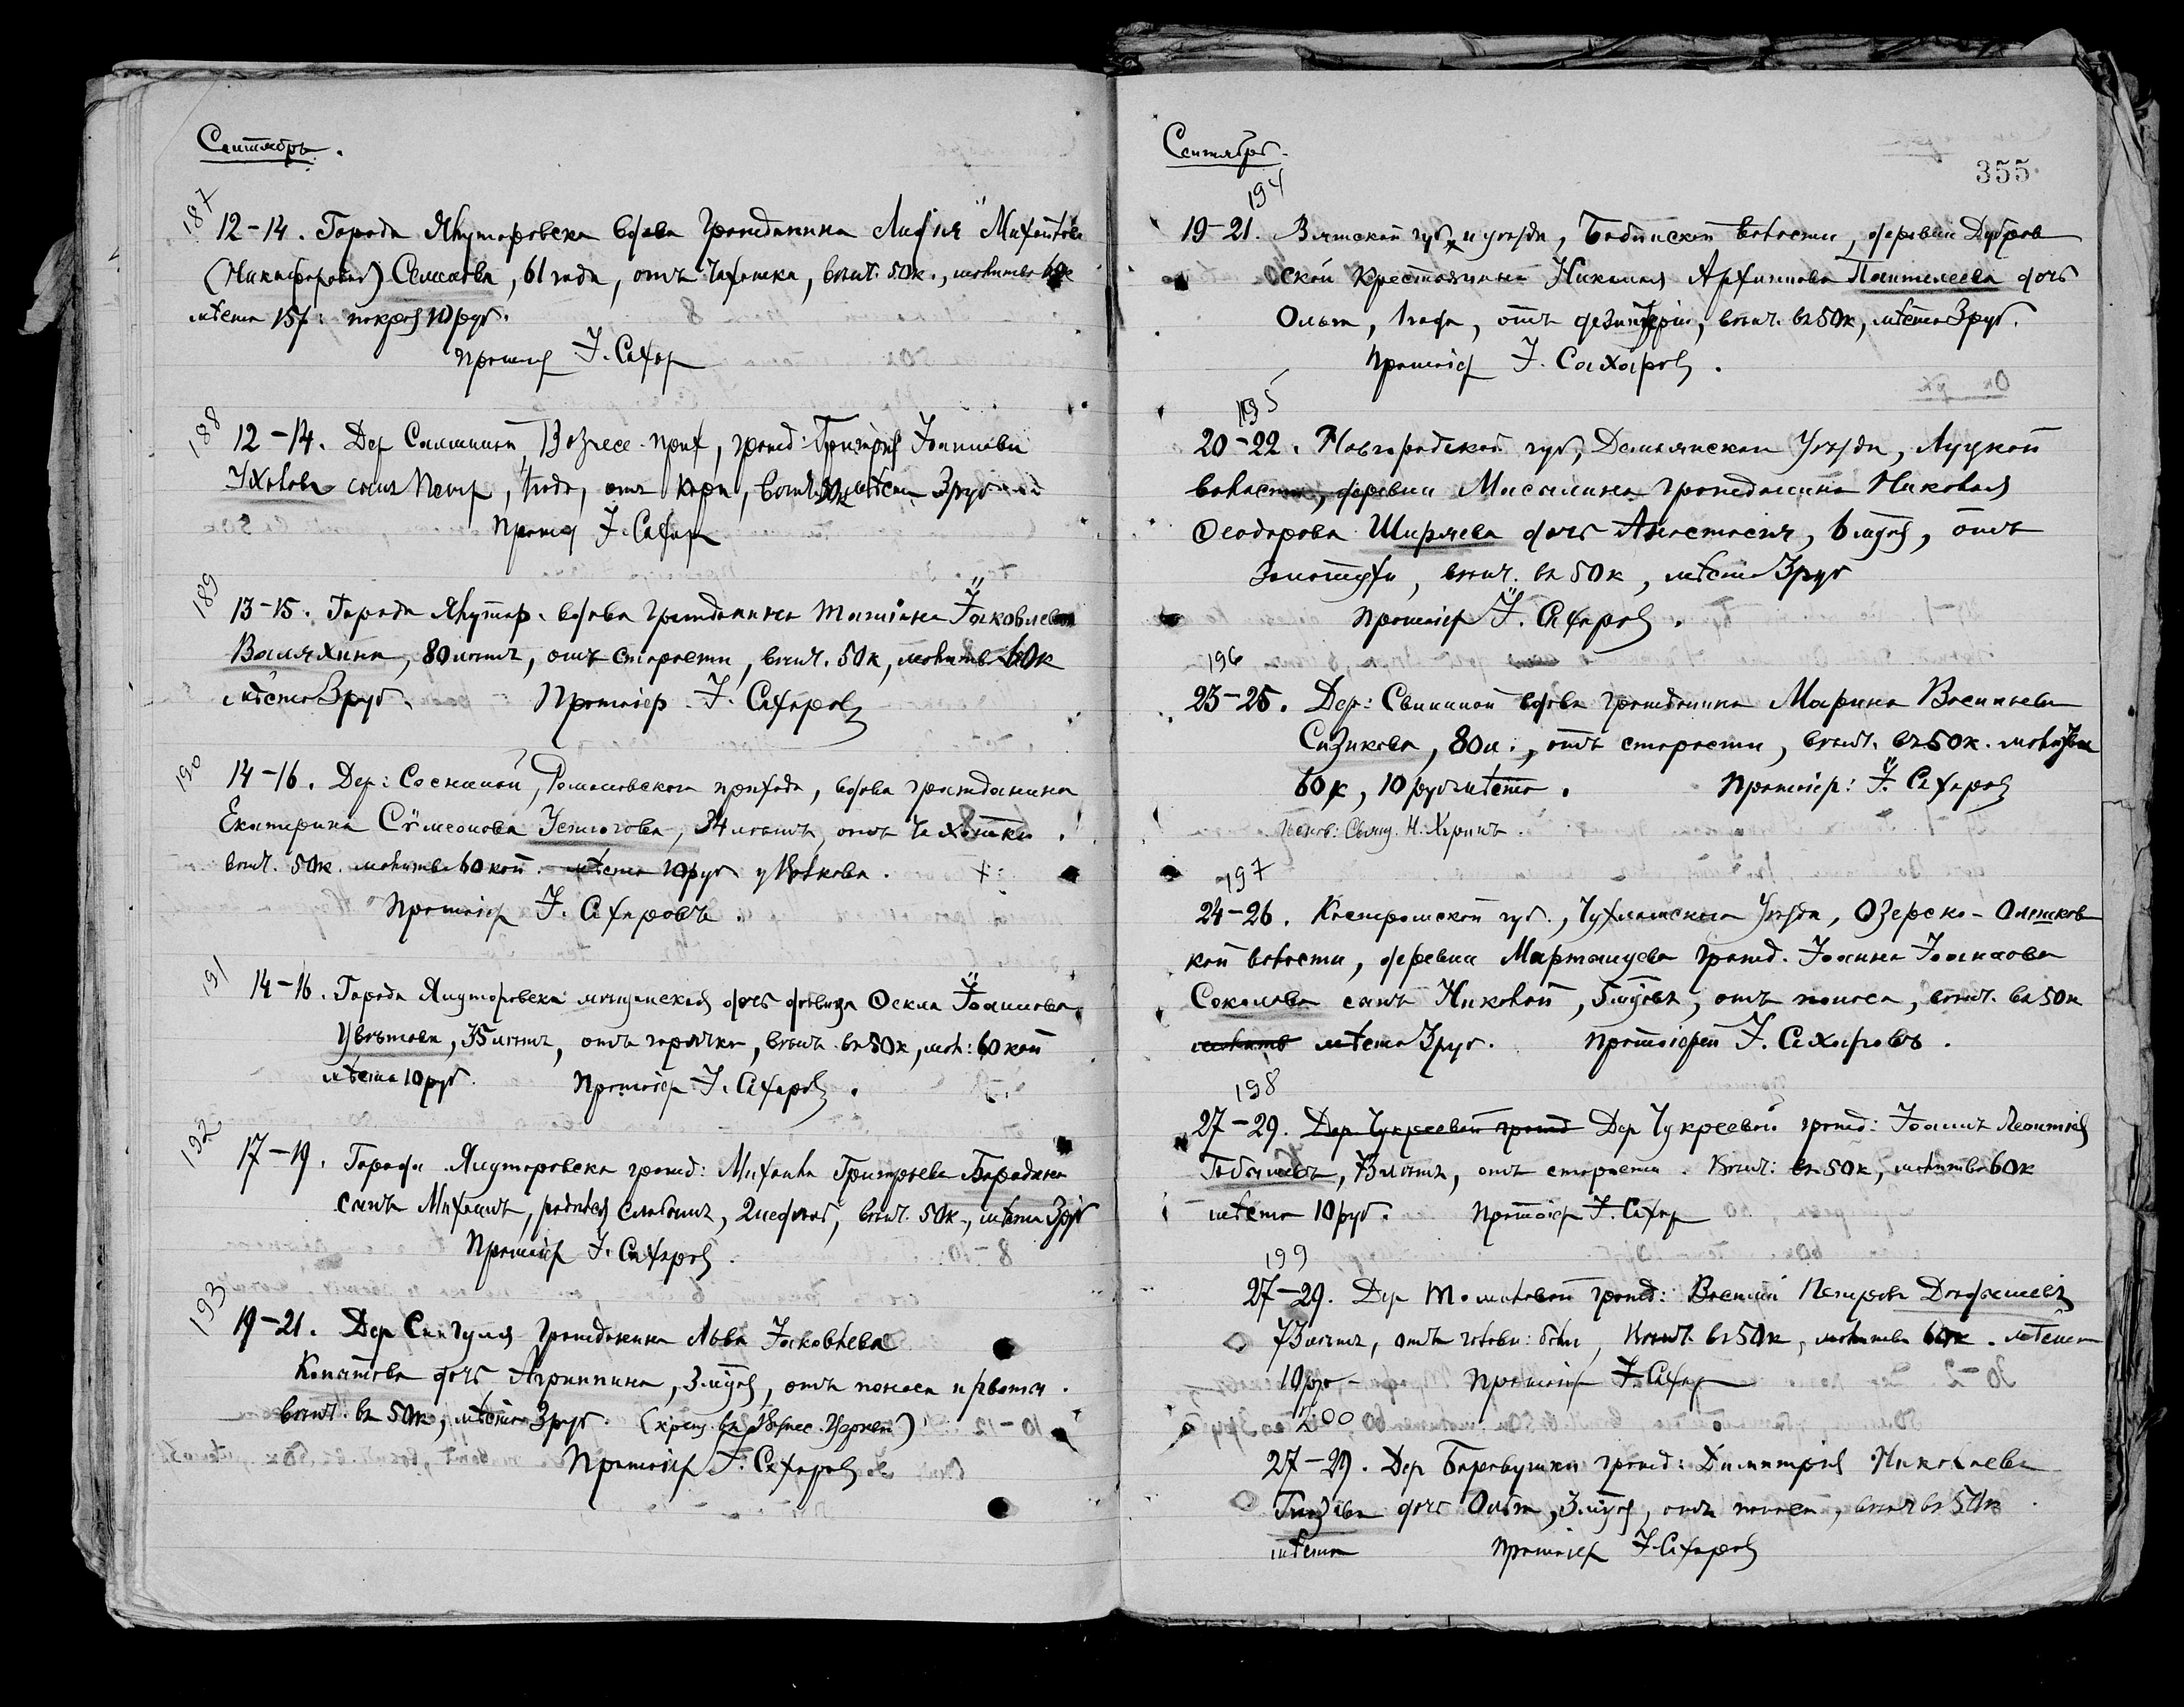 Сентябрь.
187
12-14. Города Ялуторовска вдова гражданина Лидия
(Никифорова) , 61 года, отъ чахотки, вѣнч. 50к., молитва 60к
мѣсто 15р: покров 10 руб.
Протоіер І. Сахар
188
12-14. Дер Вознесе. прих, гражд: Григорія Іоаннова
Ухалова сынъ Петръ, 1 года, отъ кори, мѣсто 3 руб
Протоі І. Сахар
189
13-15. Города Ялутор. вдова гражданина Татіана Іаковлева
Валяхина, 80 лѣтъ, отъ старости, вѣнч. 50к, молитва 60к
мѣсто 3 руб. Протоіер. І. Сахаровъ
190
14-16. Дер: Сосниной, Романовскаго прихода, вдова гражданина
Екатерина Сѵмеонова Устюгова, 34 лѣтъ, отъ чахотки.
вѣнч. 50к. молитва 60 коп. мѣсто 10 руб у Волкова.
Протоіер І. Сахаровъ.
191
14-16. Города Ялуторовска мѣщанская дочь дѣвица Ѳекла Іоаннова
Цвѣтова, 35 лѣтъ, отъ горячки, вѣнч. въ 50к, мол: 60 коп
мѣсто 10 руб. Протоіер І. Сахаровъ.
192
17-19. Города Ялуторовска гражд: Михаила Григорьева Бородина
сынъ Михаилъ, родился слабымъ, 2 недѣль, вѣнч. 50к., мѣсто 3 руб
Протоіер І. Сахаровъ.
193
19-21. Дер Сингуля гражданина Льва Іаковлева
Копотова дочь Агриппина, 3 мѣс, отъ поноса и рвоты.
вѣнч. въ 50к, мѣсто 3 руб. (крещ. въ Вознес. Церкви)
Протоіер І. Сахаровъ
Сентябрь.
355
194
19-21. Вятской губ. и уѣзда, Бобинской волости, деревни Дубров
ской крестьянина Николая Архипова Пантелеева дочь
Ольга, 1 года, отъ дезинтеріи, вѣнч. въ 50к, мѣсто 3 руб.
Протоіер І. Сахаровъ.
195
20-22. Новгородской губ, Демьянскаго Уѣзда, Луцкой
волости, деревни Мисалина гражданина Николая
Ѳеодорова Ширяева дочь Анастасія, 6 мѣс, отъ
золотухи, вѣнч. въ 50к, мѣсто 3 руб
Протоіер І. Сахаровъ.
196
23-25. Дер: Свининой вдова гражданина Марина Васильева
Сизикова, 80 л., отъ старости, вѣнч. въ 50к. молитва
60к, 10 руб мѣсто. Протоіер: І. Сахаровъ
Свящ. Н.
197
24-26. Костромской губ., Чухломскаго Уѣзда, Озерско-Олешков
кой волости, деревни Марташуева гражд. Іоанна Іоаннова
Соколова сынъ Николай, 5 мѣсъ, отъ поноса, вѣнч. въ 50к
молитв мѣсто 3 руб. Протоіерей І. Сахаровъ.
198
27-29. Дер Чукреевой гражд Дер Чукреевой гражд: Іоаннъ Леонтіев
, 73 лѣтъ, отъ старости. Вѣнч: въ 50к, молитва 60к
мѣсто 10 руб. Протоіер І. Сахар
199
27-29. Дер Томиловой гражд: Василій Петровъ
73 лѣтъ, отъ головн: боли, Вѣнч. въ 50к, молитва 60к. мѣсто
10 ру- Протоіер І. Сахар
200
27-29. Дер Боровушки гражд: Димитрія Николаева
дочь Ольга, 3 мѣс, отъ поноса, вѣнч въ 50к
мѣсто Протоіер І. Сахаровъ